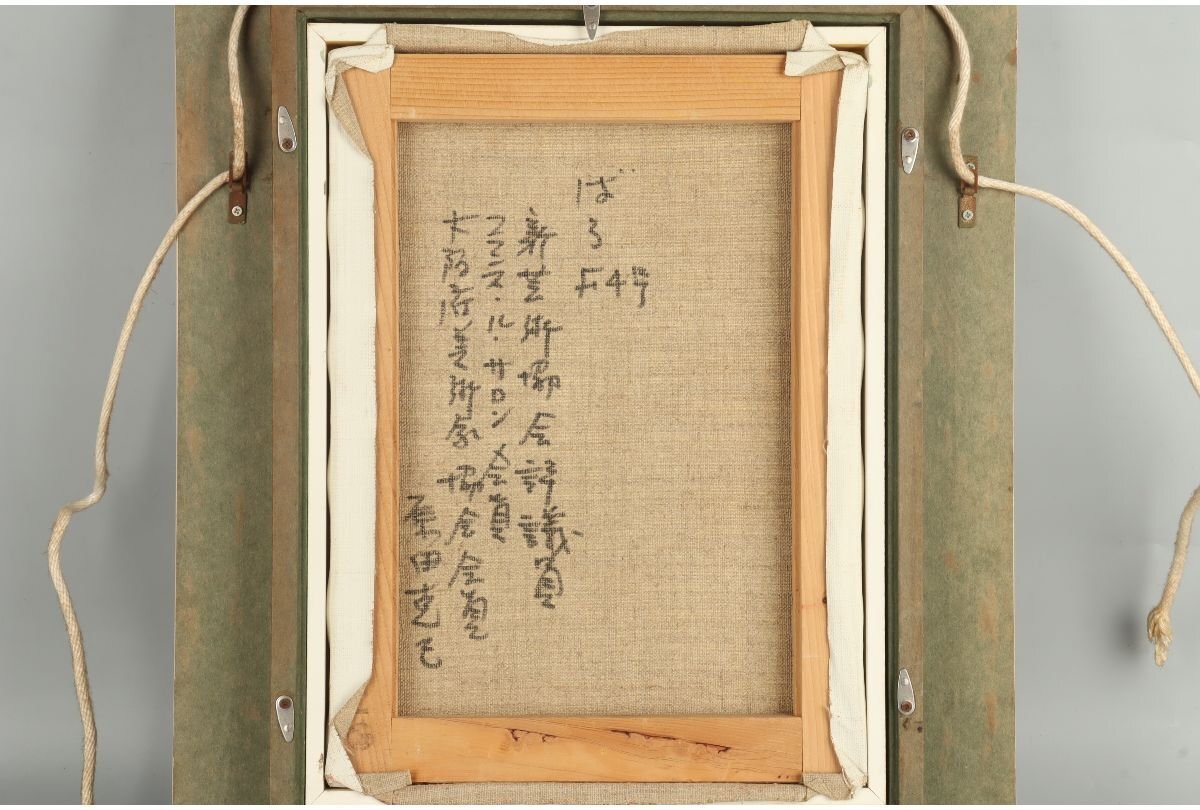 ばら
F4号
新芸術協会評議員
フランス・ル・サロン会員
大阪府芸術家協会会員
原田克己